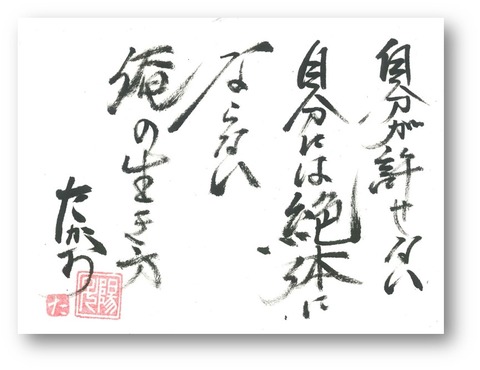 自分が許せない
自分には絶体に
ならない
俺の生き方
たかお
た